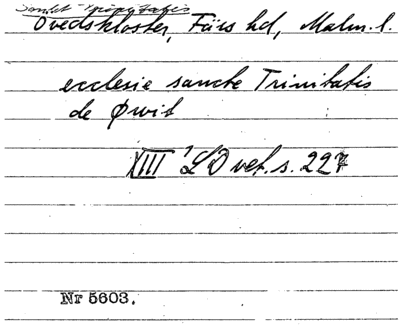 Sankt Trinitatis
Övedskloster, Färs hd, Malm. l.
ecclesie sancte Trinitatis
de Øwit
XIII 1 LD vet. s. 227
Nr 5603.